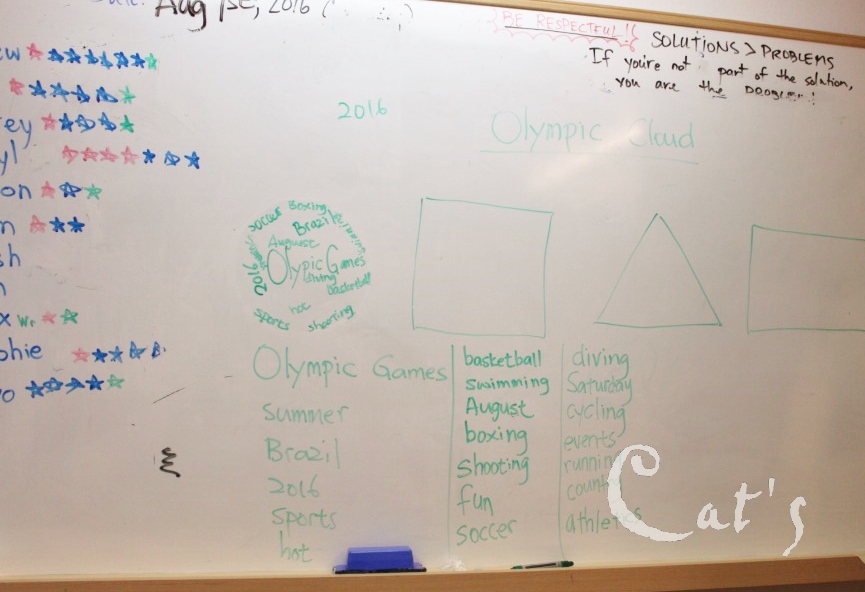 Aug 1st, 2016
BE RESPECTFUL!!
SOLUTIONS > PROBLEMS
If you're not part of the solution,
you are the problem!
2016
Olympic Cloud
ew
ey
yl
on
n
sh
x Wr
phie
o
soccer Boxing
Brazil running
August
Olypic Games
2016
diving
basketball
hot
sports shooting
Olympic Games
Summer
Brazil
2016
Sports
hot
basketball
swimming
August
boxing
shooting
fun
soccer
diving
Saturday
cycling
events
runnin
count
athletes
Cat's